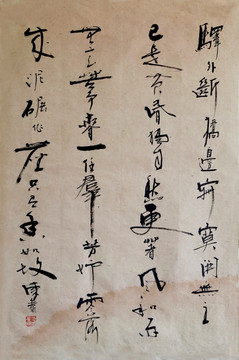 驛外斷橋邊寂寞開無主
已是黃昏獨自愁更著風和雨
無意苦爭春一任羣芳妒零落
成泥碾作塵只有香如故